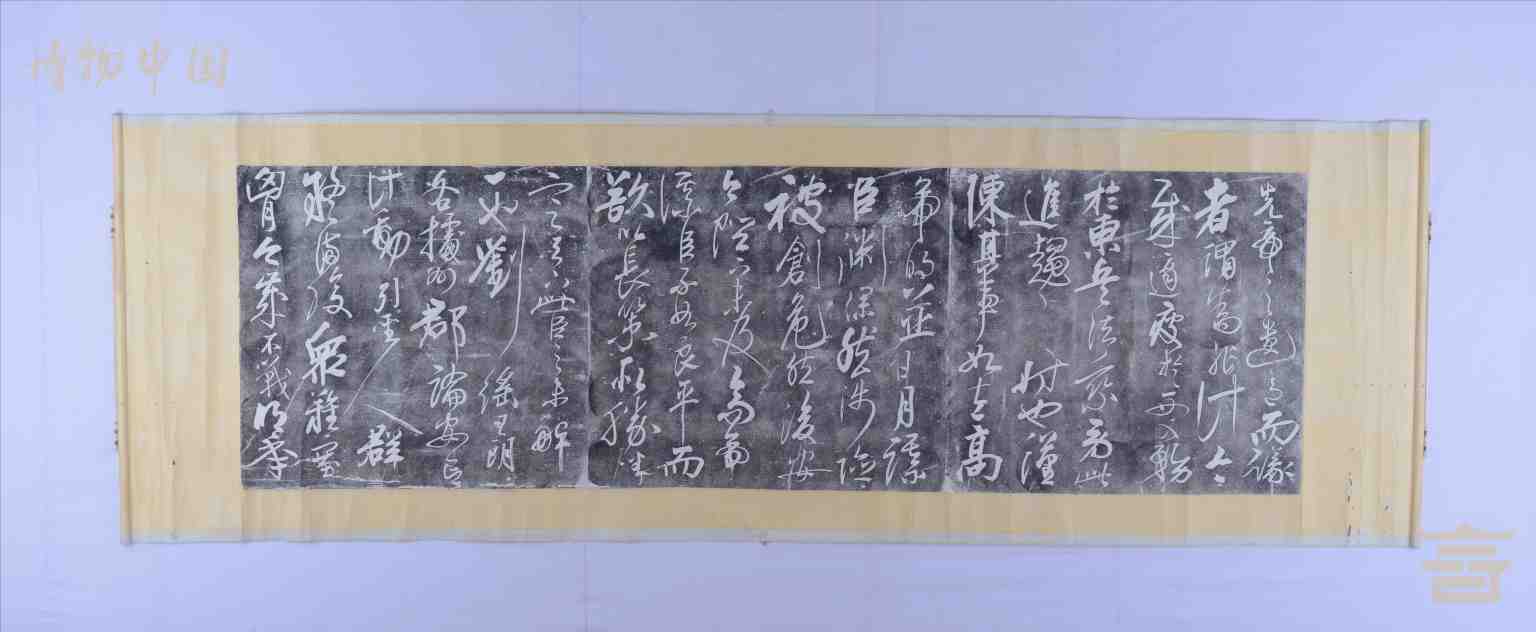 博物中国
先帝之遺意而議
者謂為非計今
賊適疲於西又務
於東兵法乘勞此
進趨之時也謹
陳其事如左高
帝明並日月謀
臣淵深然涉險
被創危然後安
今陛下未及高帝
謀臣不如良平而
欲以長策取勝坐
定天下此臣之未解
一也劉繇王朗
各據州郡論安言
計動引聖人群
疑滿腹衆難塞
胸今歲不戰明年